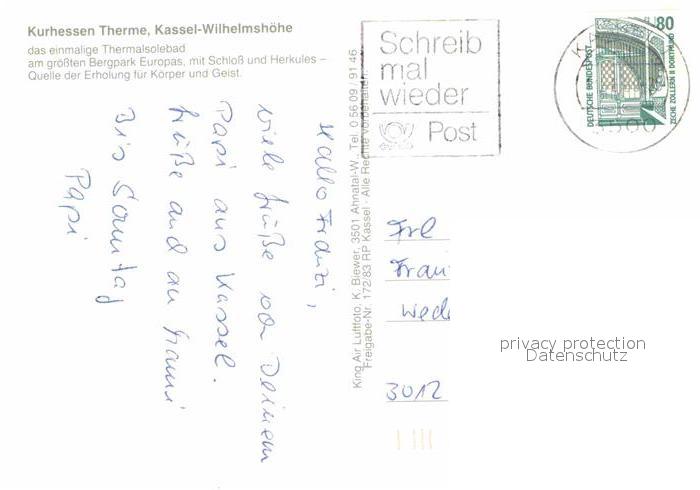 Kurhessen Therme, Kassel-Wilhelmshöhe
das einmalige Thermalsolebad
am größten Bergpark Europas, mit Schloß und Herkules –
Quelle der Erholung für Körper und Geist.
Hallo Franzi,
viele Grüße von Deinem
Papi aus Kassel.
Grüße auch an Mami
Bis Sonntag
Papi
King Air Luftfoto, K. Biewer, 3501 Ahnatal-W., Tel. 0 56 09 / 91 46
Freigabe-Nr. 172/83 RP Kassel - Alle Rechte vorbehalten.
Schreib
mal
wieder
Post
80
DEUTSCHE BUNDESPOST
ZECHE ZOLLERN II DORTMUND
3500
Frl
Fran
Wede
3012
privacy protection
Datenschutz